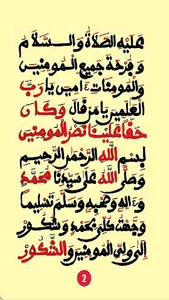 عليه الصلاة والسلام
وفرحة جميع المومنين
والمومنات ءامين يارب
العلمين يامن قال وكان
حقا علينا نصر المومنين
بسم الله الرحمن الرحيم
وصلى الله على سيدنا محمد
وءاله وصحبه وسلم تسليما
وشكور
إلى ولي المومنين والشكور
2